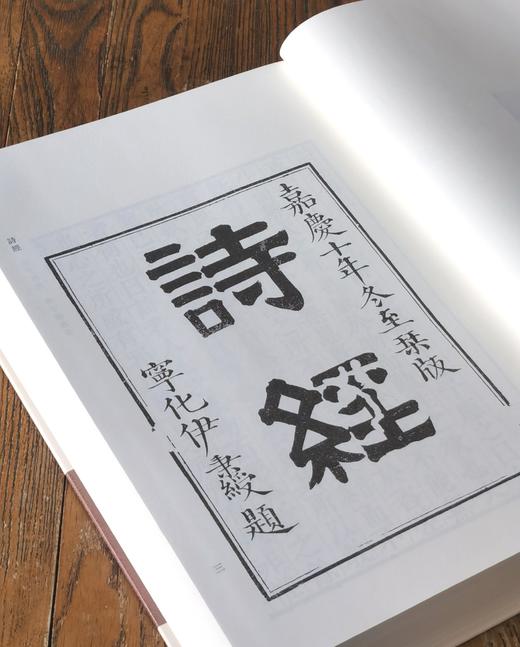 嘉慶十年冬至栞版
詩經
寧化伊秉綬題
詩經
三